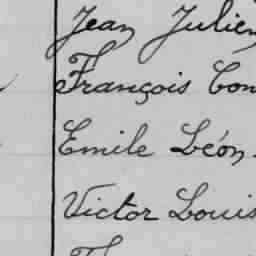 Jean Julien
François Con
Emile Léon
Victor Louis